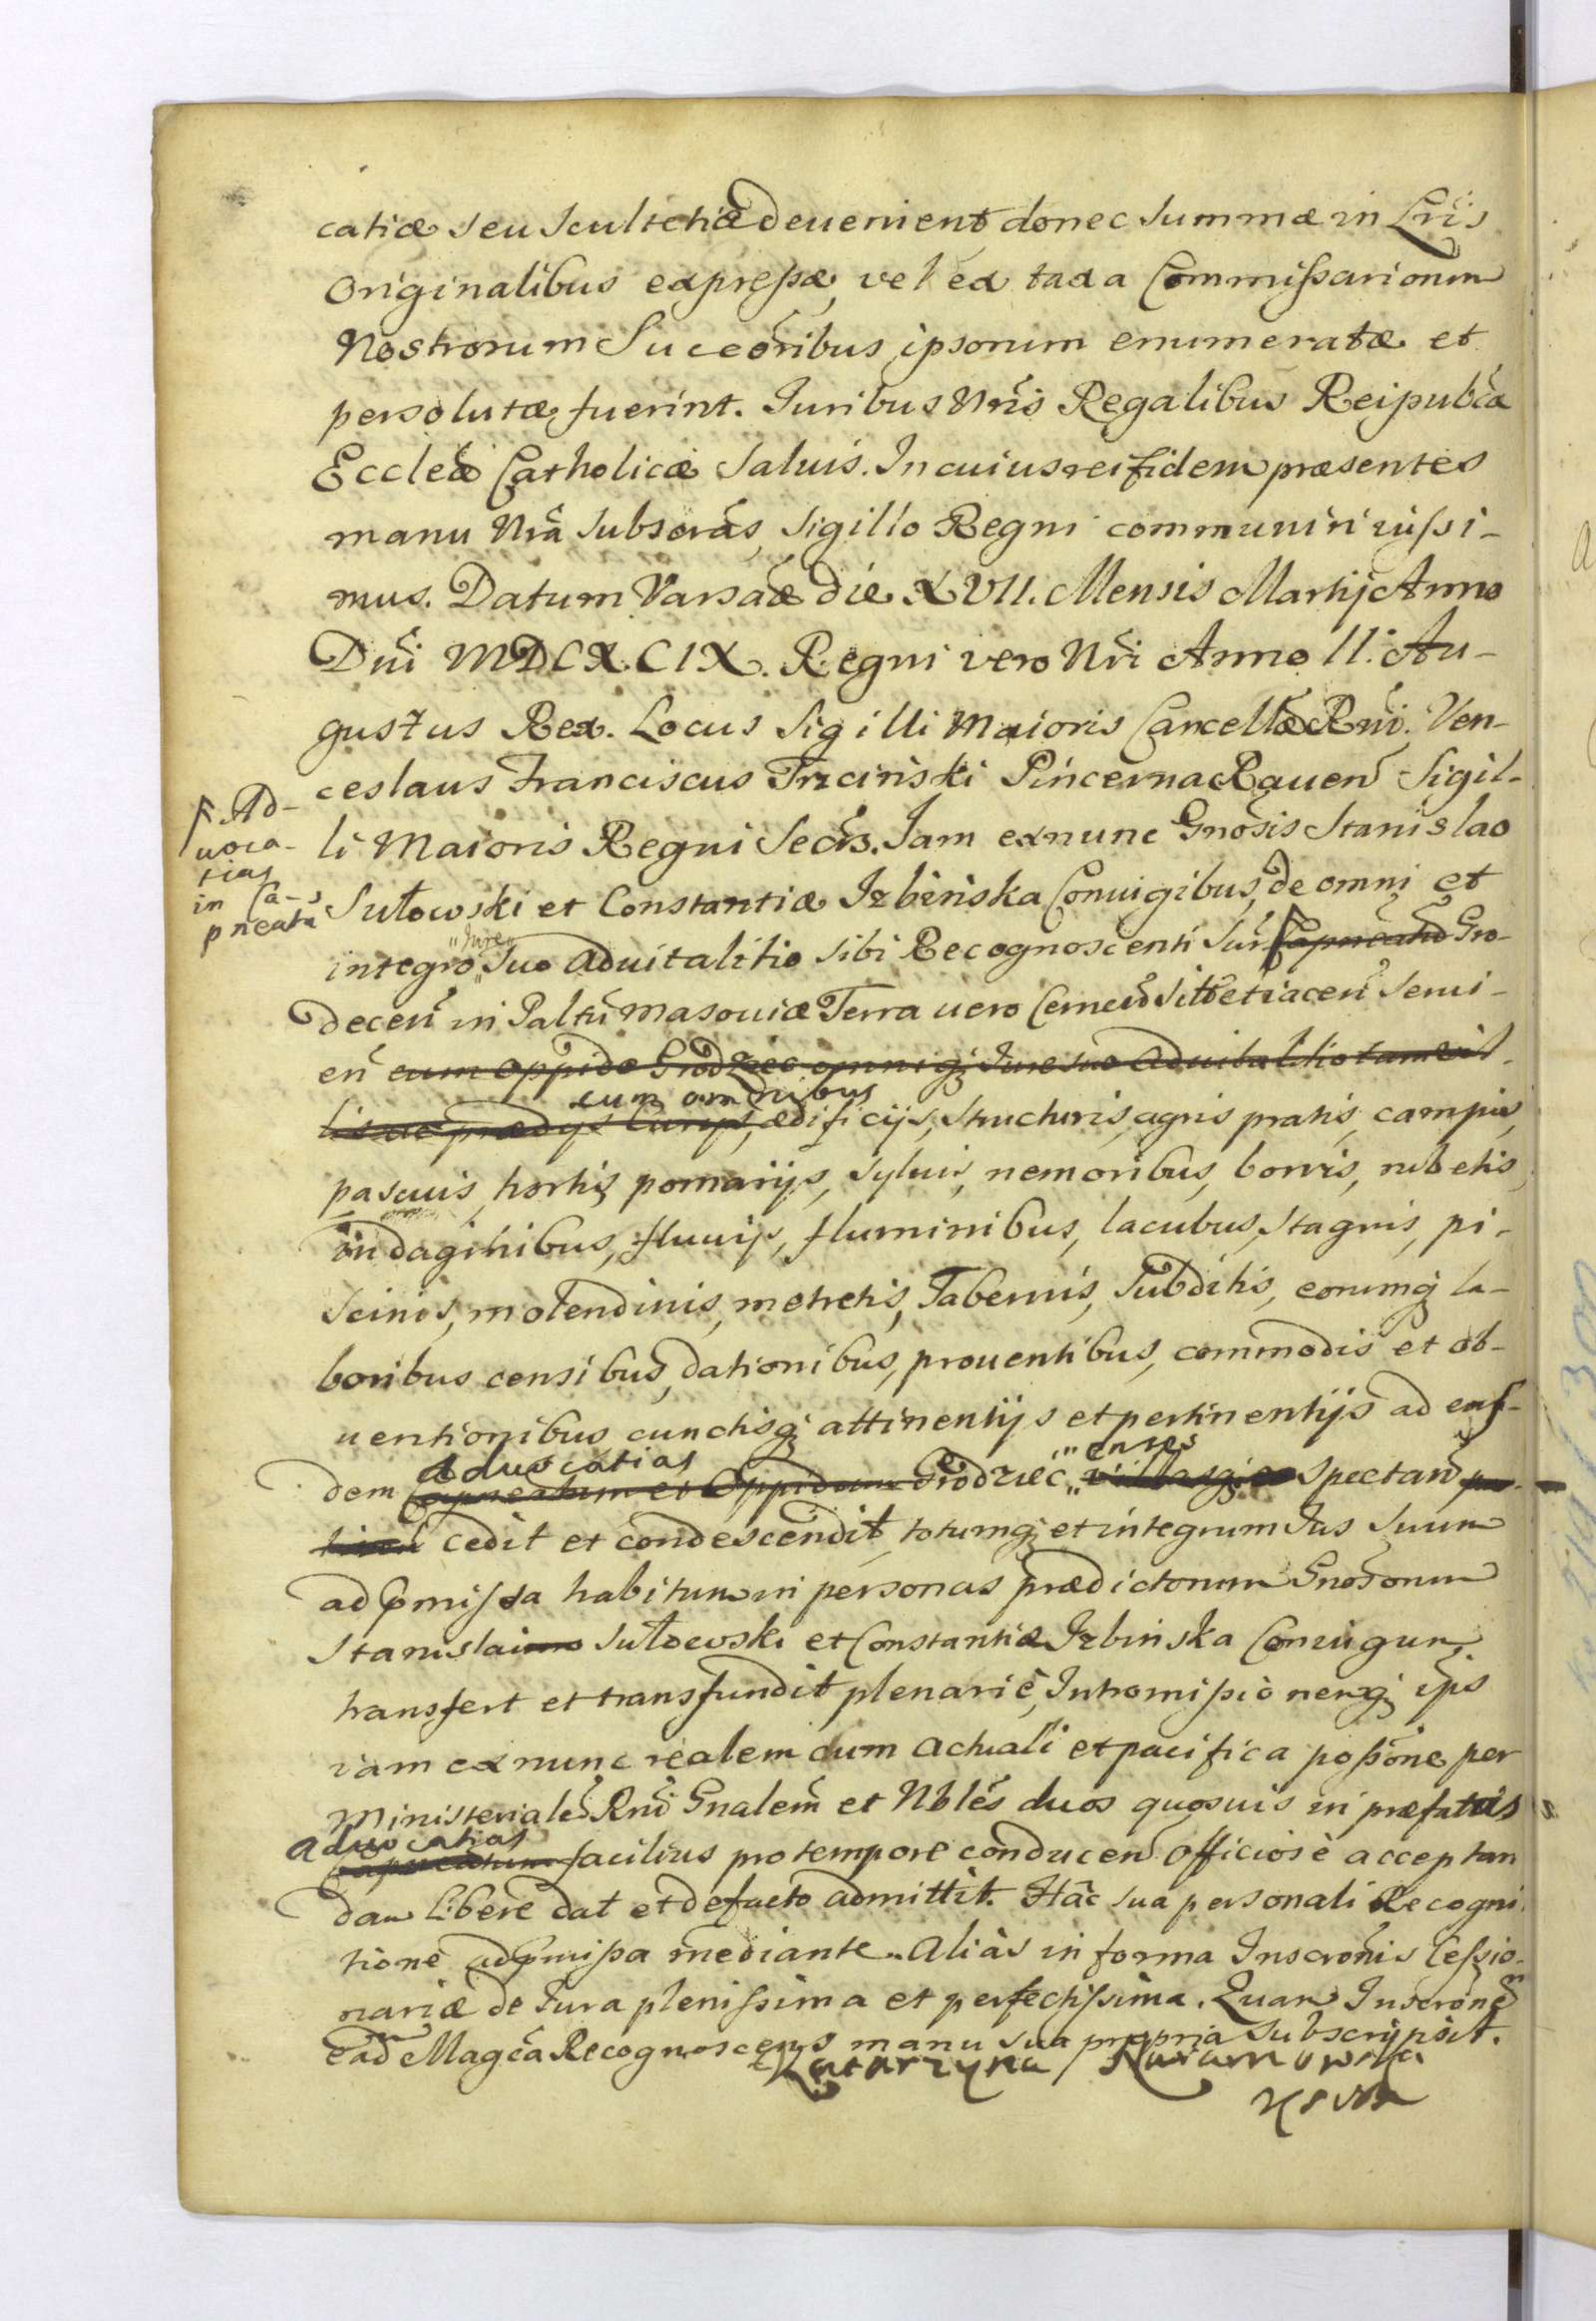 catiæ seu Scultetiæ deuenient donec summæ in Lris
Originalibus expressæ, vel ex taxa Commissariorum
Nostrorum Succeoribus ipsorum enumeratæ et
persolutæ fuerint. Iuribus Nris Regalibus Reipubca
Eccleæ Catholicæ Saluis. In cuius rei fidem præsentes
manu Nra Subscras, Sigillo Regni communiri iussi-
mus. Datum Varsaæ die XVII. Mensis Martij Anno
Dni MDCXCIX. Regni vero Nri Anno II. Au-
gustus Rex. Locus Sigilli Maioris Cancellæ Rni. Ven-
ceslaus Franciscus Trzcinski Pincerna Rauen Sigil-
li Maioris Regni Secrs. Iam exnunc Gnosis Stanislao
Sułowski et Constantiæ Izbinska Coniugibus, de omni et
Ad-
uoca-
tias
in Ca-
pneatu
integro Iure Suo aduitalitio sibi Recognoscenti Sur Capneatu Gro-
decen in Paltu Masouiæ Terra uero Cernen Sitt et iacen Serui-
en cum oppido Grodziec omniq Iure suo aduitalitio tam vil-
lis ac prædijs Curijs, cum omnibus ædificijs, Structuris, agris pratis, campis,
pascuis, hortis pomarijs, syluis, nemoribus, borris, rubetis,
indaginibus, fluuijs, fluminibus, lacubus, Stagnis, pi-
scinis, molendinis, metretis, Tabernis, Subditis, eorumq la-
boribus censibus, dationibus, prouentibus, commodis et ob-
uentionibus cunctisq attinentijs et pertinentijs ad eas-
dem aduocatias Capneatum et Oppidum Grodziec enses villasq spectan
cedit et condescendit, totumq et integrum Ius Suum
ad pmissa habitum in personas prædictorum Gnosorum
Stanislai Sułowski et Constantiæ Izbinska Coniugum
transfert et transfundit plenariè, Intromissionemq ipis
iam exnunc realem cum actuali et pacifica possione per
Ministeriale Rni Gnalem et Nbles duos quosuis in præfatas
aduocatias Capneatum facilius pro tempore conducen officiosè acceptan
dam Liberè dat et defacto admittit. Hâc sua personali Recogni
tione ad pmissa mediante. Aliàs in forma Inscronis Cessio-
nariæ de Iura plenissima et perfectissima. Quam Inscrone
ead Magca Recognoscens manu sua propria Subscripsit.
Katarzyna